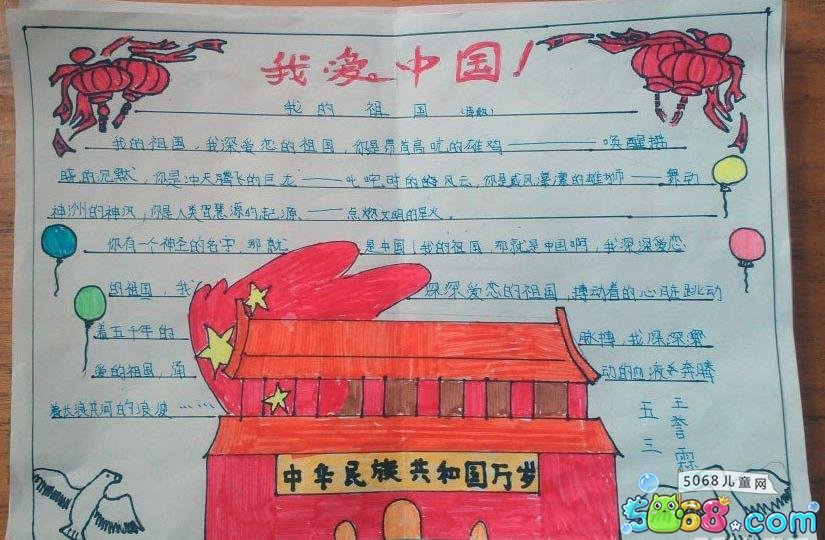 我爱中国！
我的祖国（诗歌）
我的祖国，我深爱恋的祖国，你是昂首高吭的雄鸡——唤醒拂
晓的沉默，你是冲天腾飞的巨龙——叱咤时的风云，你是威风凛凛的雄狮——舞动
神洲的神汉，你是人类智慧源的起源——点燃文明的星火。
你有一个神圣的名字，那就是中国！我的祖国，那就是中国啊，我深深爱恋
的祖国，我深深爱恋的祖国，搏动着的心脏跳动
着五千年的脉搏，我深深
爱的祖国，涌动的血液奔腾
着长浪 河的浪波……
五三
王誉霖
中华民族共和国万岁
5068儿童网
5068.com